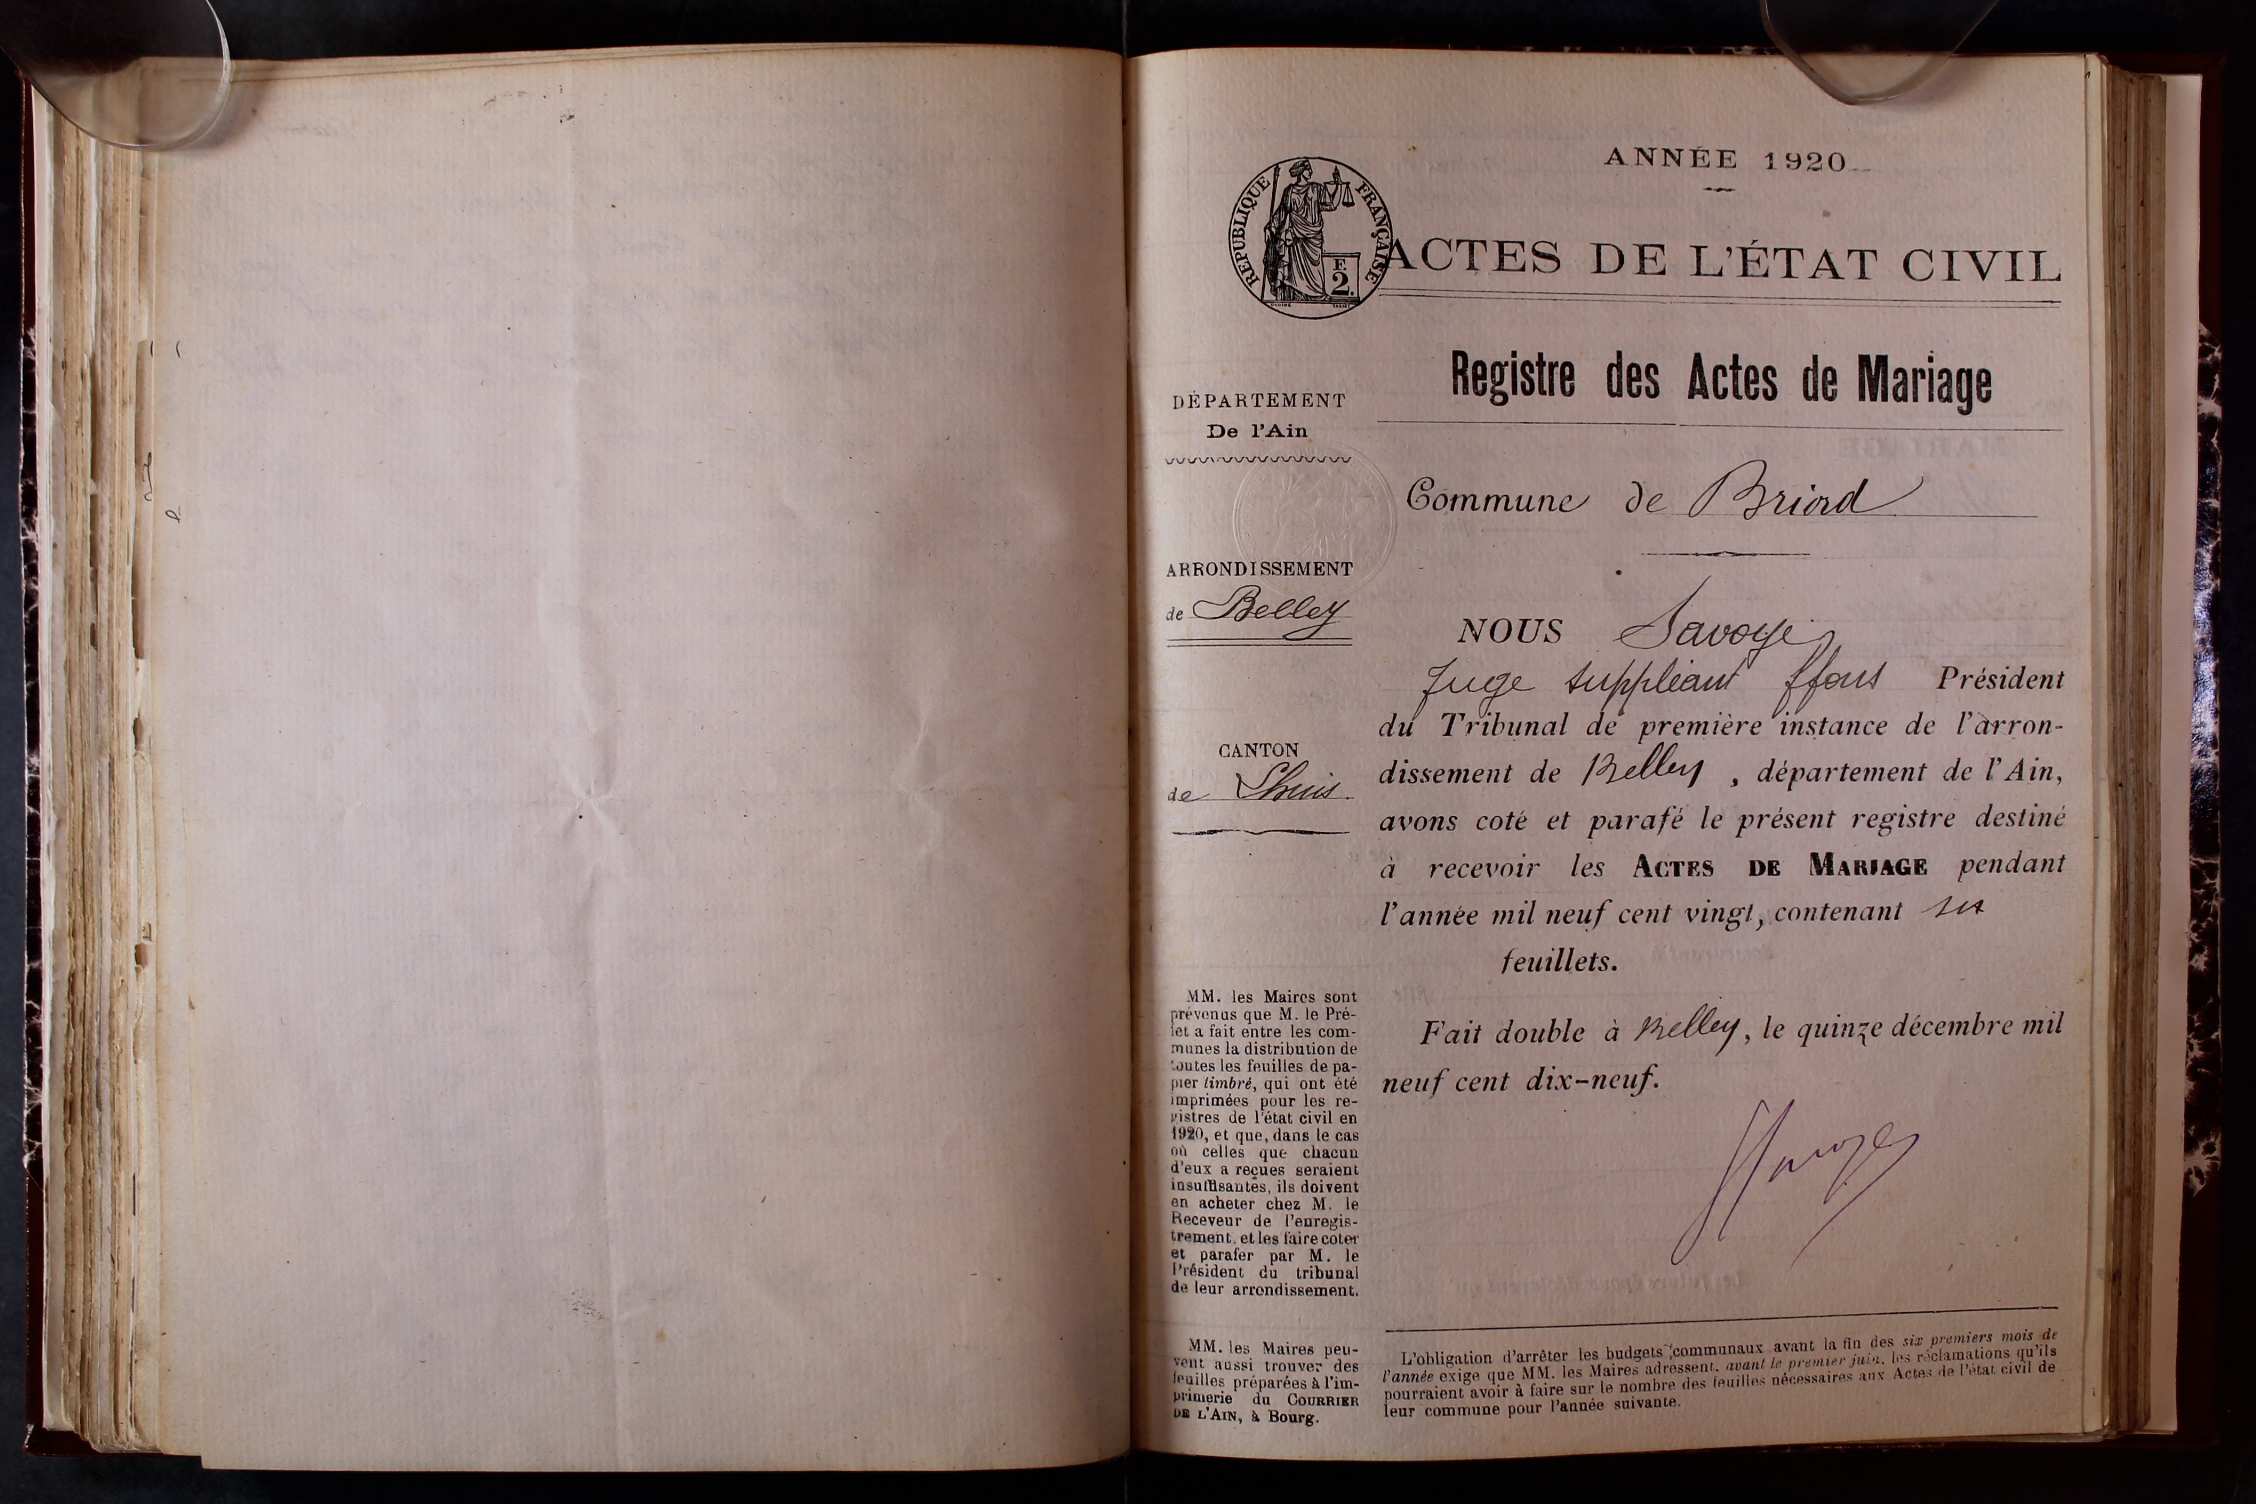 ANNÉE 1920
RÉPUBLIQUE FRANÇAISE
F.
2.
ACTES DE L'ÉTAT CIVIL
Registre des Actes de Mariage
DÉPARTEMENT
De l'Ain
ARRONDISSEMENT
de Belley
CANTON
de Lhuis
MM. les Maires sont
prévenus que M. le Pré-
fet a fait entre les com-
munes la distribution de
toutes les feuilles de pa-
pier timbré, qui ont été
imprimées pour les re-
gistres de l'état civil en
1920, et que, dans le cas
où celles que chacun
d'eux a reçues seraient
insuffisantes, ils doivent
en acheter chez M. le
Receveur de l'enregis-
trement, et les faire coter
et parafer par M. le
Président du tribunal
de leur arrondissement.
MM. les Maires peu-
vent aussi trouver des
feuilles préparées à l'im-
primerie du COURRIER
DE L'AIN, à Bourg.
Commune de Briord
NOUS Savoye
Juge suppléant ffons Président
du Tribunal de première instance de l'arron-
dissement de Belley, département de l'Ain,
avons coté et parafé le présent registre destiné
à recevoir les ACTES DE MARIAGE pendant
l'année mil neuf cent vingt, contenant six
feuillets.
Fait double à Belley, le quinze décembre mil
neuf cent dix-neuf.
L'obligation d'arrêter les budgets communaux avant la fin des six premiers mois de
l'année exige que MM. les Maires adressent, avant le premier juin, les réclamations qu'ils
pourraient avoir à faire sur le nombre des feuilles nécessaires aux Actes de l'état civil de
leur commune pour l'année suivante.